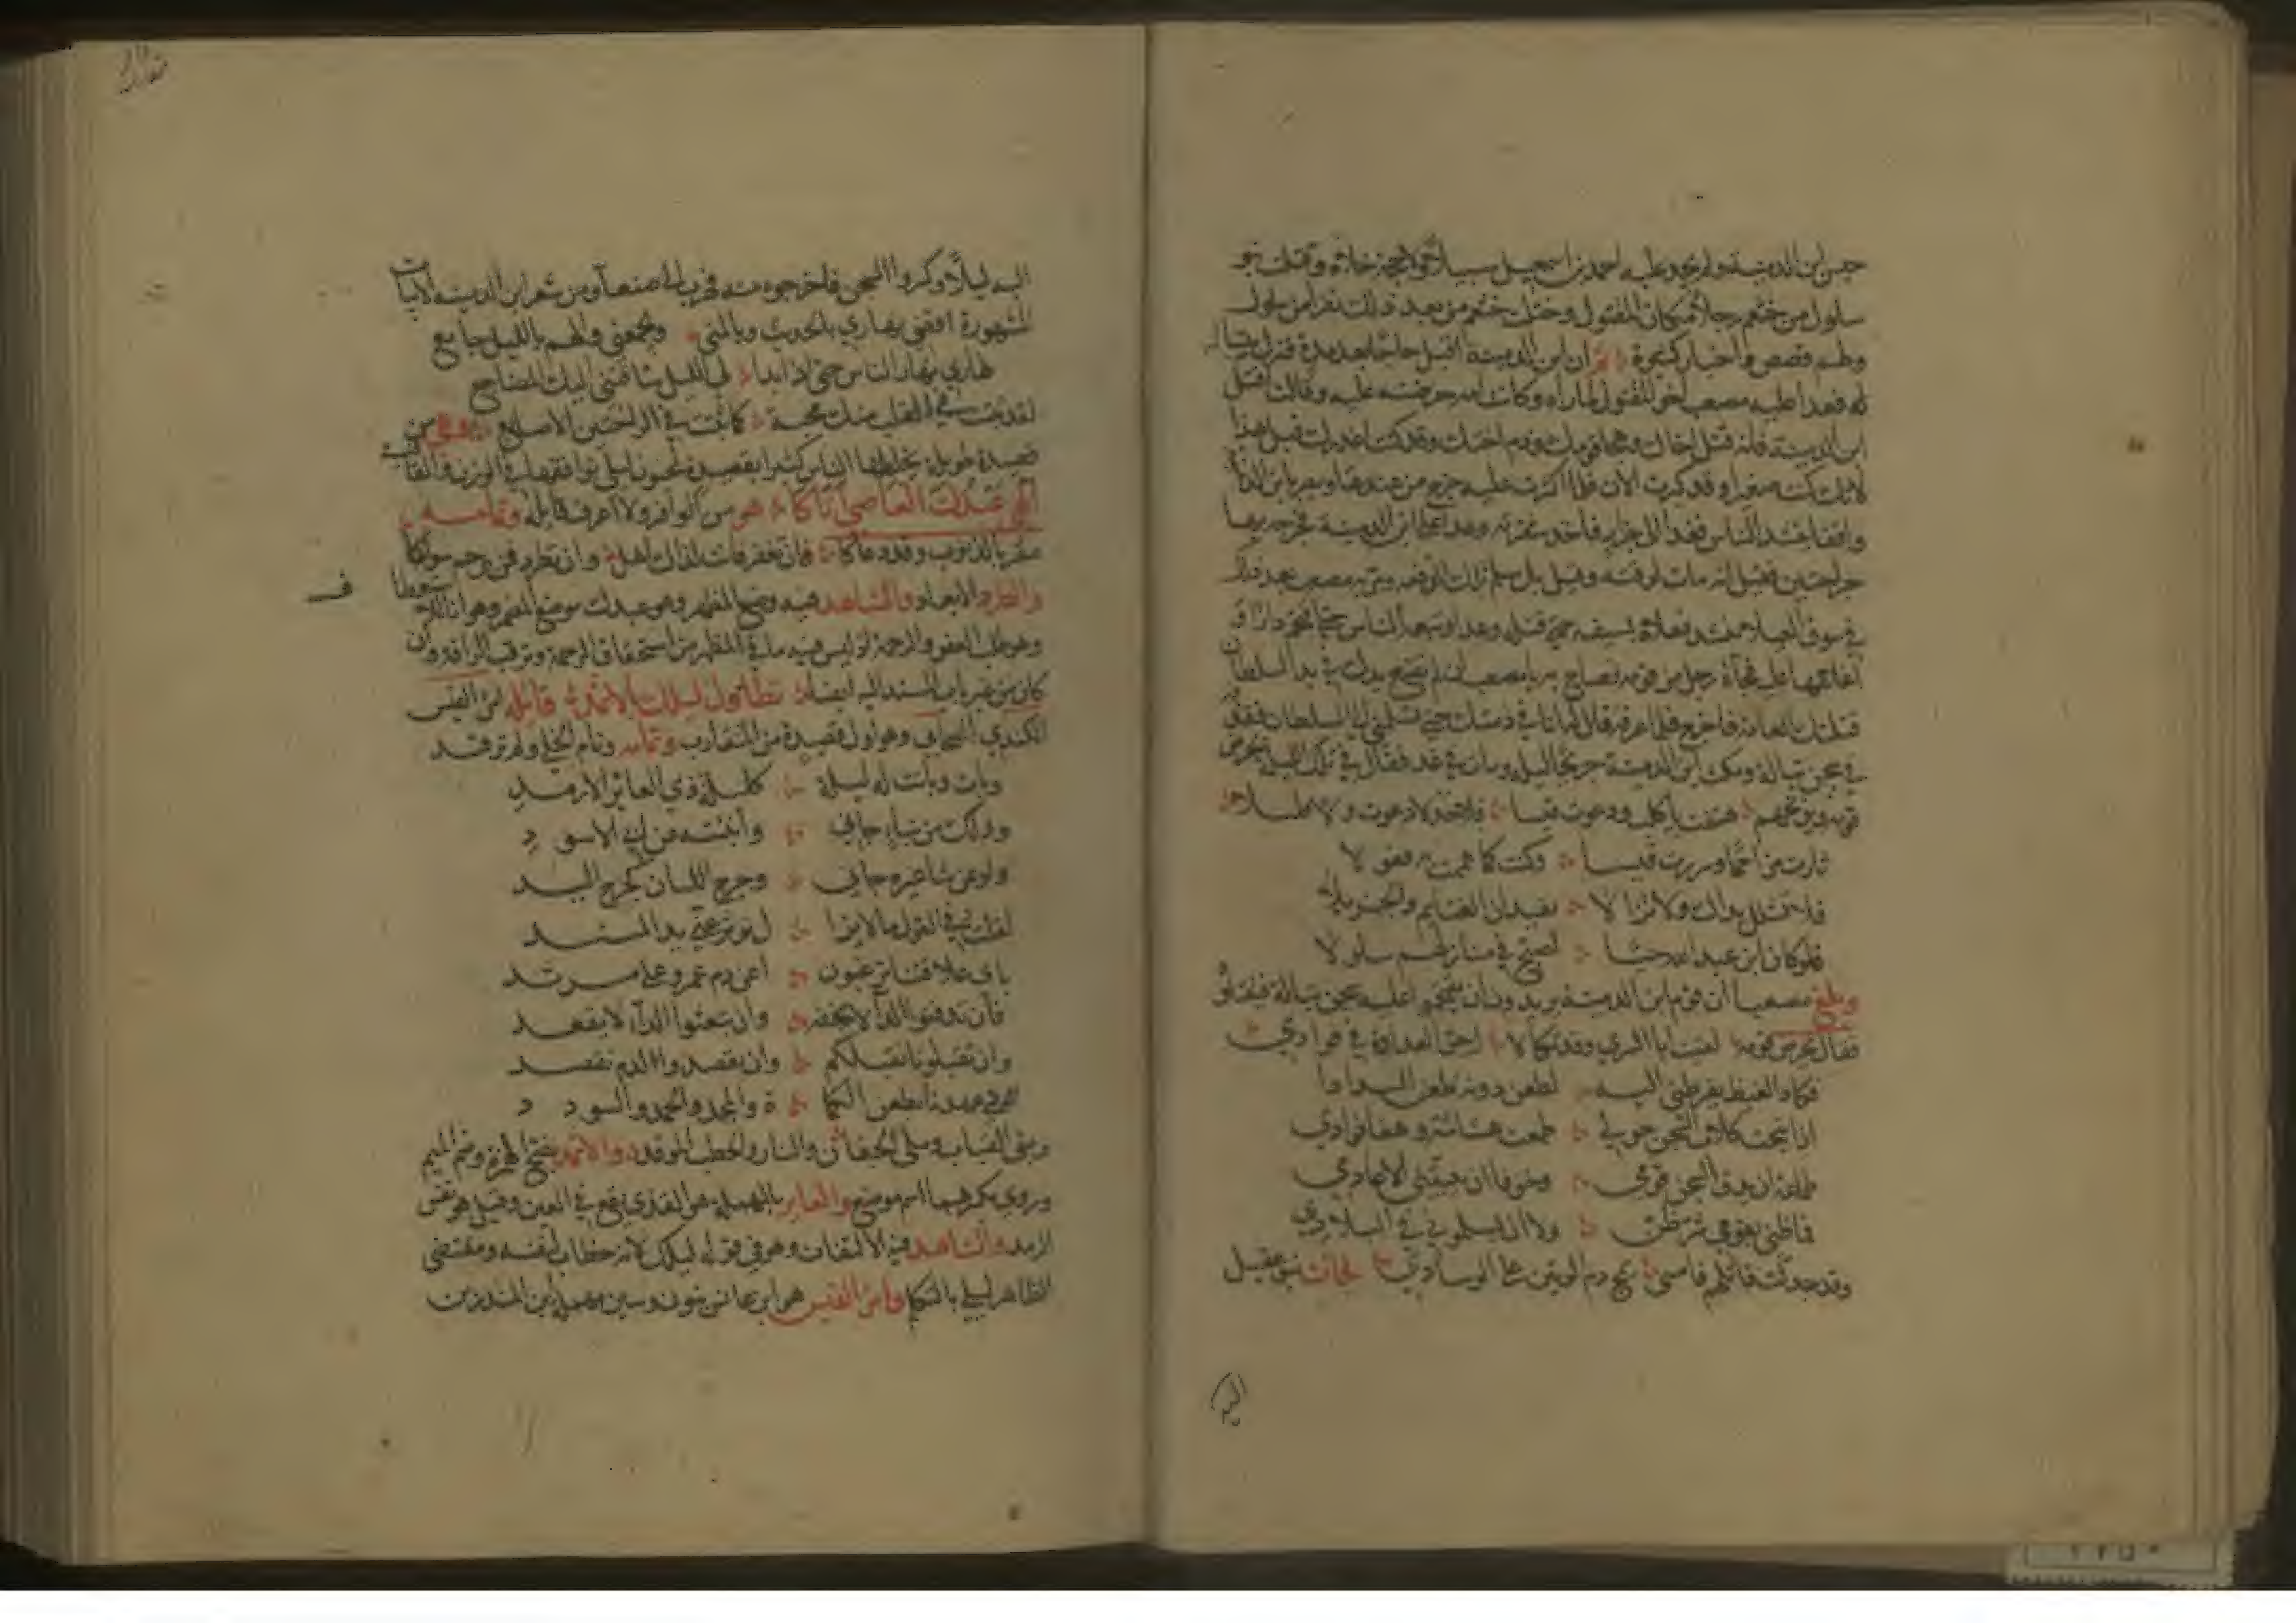 حبس ابن الدمينة ولم يجد عليه احمد بن اسمعيل سبيلا ولا حجة خلاه وقتلت بنو
سلول من خثعم رجلا مكان المقتول وقتلت خثعم من بعد ذلك نفرا من سلول
ولهم قصص واخبار كثيرة ثم ان ابن الدمينة اقبل حاجا بعد مدة فنزل بتبالة
فعدا عليه مصعب اخو المقتول لما رآه وكانت امه حرضته عليه وقالت اقتل
ابن الدمينة فانه قتل اخاك وهجا قومك وذم اختك وقد كنت اعذرك قبل هذا
لانك كنت صغيرا وقد كبرت الآن فلما اكثرت عليه خرج من عندها وبصر بابن الدمينة
واقفا ينشد الناس فغدا الى جزار فاخذ شفرته وعدا على ابن الدمينة فجرحه بها
جراحتين فقيل انه مات لوقته وقيل بل سلم تلك الدفعة ومر به مصعب بعد ذلك
في سوق العبلاء ينشد فعلاه بسيفه حتى قتله وعدا وتبعه الناس حتى اقتحم دارا و
اغلقها عليه فجاءه رجل من قومه فصاح به يا مصعب ان لم تضع يدك في يد السلطان
قتلتك العامة فاخرج فلما عرفه قال له انا في ذمتك حتى تسلمني الى السلطان فقذفه
في سجن تبالة ومكث ابن الدمينة جريحا ليلة ومات في غد فقال في تلك الليلة يحرض
قومه ويوبخهم هتفت باكلب ودعوت قيسا فلا خذلا دعوت ولا قليلا
ثارت مزاحما وسررت قيسا وكنت لما هممت به فعولا
فلا تشلل يداك ولا تزالا تفيدان الغنايم والجزيلا
فلو كان ابن عبد الله حيا لصبح في منازلهم سلولا
وبلغ مصعبا ان قوم ابن الدمينة يريدون ان يقتحموا عليه سجن تبالة فيقتلوه
فقال يحرض قومه لقيت ابا السري وقد تكالا له حق العداوة في فوادي
فكاد الغيظ يفرطني اليه لطعن دونه طعن السدادا
اذا نبحت كلاب السجن حولي طمعت هشاشة وهفا فوادي
طماعة ان يدق السجن قومي وخوفا ان تبيتني الاعادي
فما ظني بقومي شر ظن ولا ان يسلموني في البلاد
وقد جدلت قاتلهم فامسى يمج دم الوتين على الوساد فجاءت بنو عقيل
اليه ليلا وكسروا السجن فاخرجوه منه فهرب الى صنعاء ومن شعر ابن الدمينة الابيات
المشهورة اقضي نهاري بالحديث وبالمنى ويجمعني والهم بالليل جامع
نهاري نهار الناس حتى اذا بدا لي الليل شاقتني اليك المضاجع
لقد ثبتت في القلب منك محبة كما ثبتت في الراحتين الاصابع وهي من
قصيدة طويلة يخلطها الناس كثيرا بقصيدة لمجنون ليلى توافقها في الوزن والقافية
الهي عبدك العاصي اتاكا هو من الوافر ولا اعرف قائله وتمامه
مقرا بالذنوب وقد دعاكا فان تغفر فانت لذاك اهل وان تطرد فمن يرحم سواكا
والطرد الابعاد والشاهد فيه وضع المظهر وهو عبدك موضع المضمر وهو انا استعطافا
وهو طلب العفو والرحمة اذ ليس فيه ما في المظهر من استحقاق الرحمة وترقب الرافة وان
كان من غير باب المسند اليه ايضا تطاول ليلك بالاثمد قائله امرؤ القيس
الكندي الصحابي وهو اول قصيدة من المتقارب وتمامه ونام الخلي ولم ترقد
وبات وباتت له ليلة كليلة ذي العائر الارمد
وذلك من نبإ جاءني وانبئته عن ابي الاسود
ولو عن نثا غيره جاءني وجرح اللسان كجرح اليد
لقلت من القول ما لا يزا ل يوثر عني يد المسند
باي علاقتنا ترغبون اعن دم عمرو على مرثد
فان تدفنوا الداء لا نخفه وان تبعثوا الداء لا نقعد
وان تقتلونا نقتلكم وان تقصدوا الدم نقصد
متى عهدنا بطعن الكما ة والمجد والحمد والسودد
وبني القباب وملئ الجفان والنار والحطب الموقد والاثمد بفتح الهمزة وضم الميم
وروي بكسرهما اسم موضع والعاير بالمهملة هو القذى يقع في العين وقيل هو نفس
الرمد والشاهد فيه الالتفات وهو في قوله ليلك لانه خطاب لنفسه ومقتضى
الظاهر ليلي بالتكلم وامرؤ القيس هو ابن عانس بنون وسين مهملة ابن المنذر بن